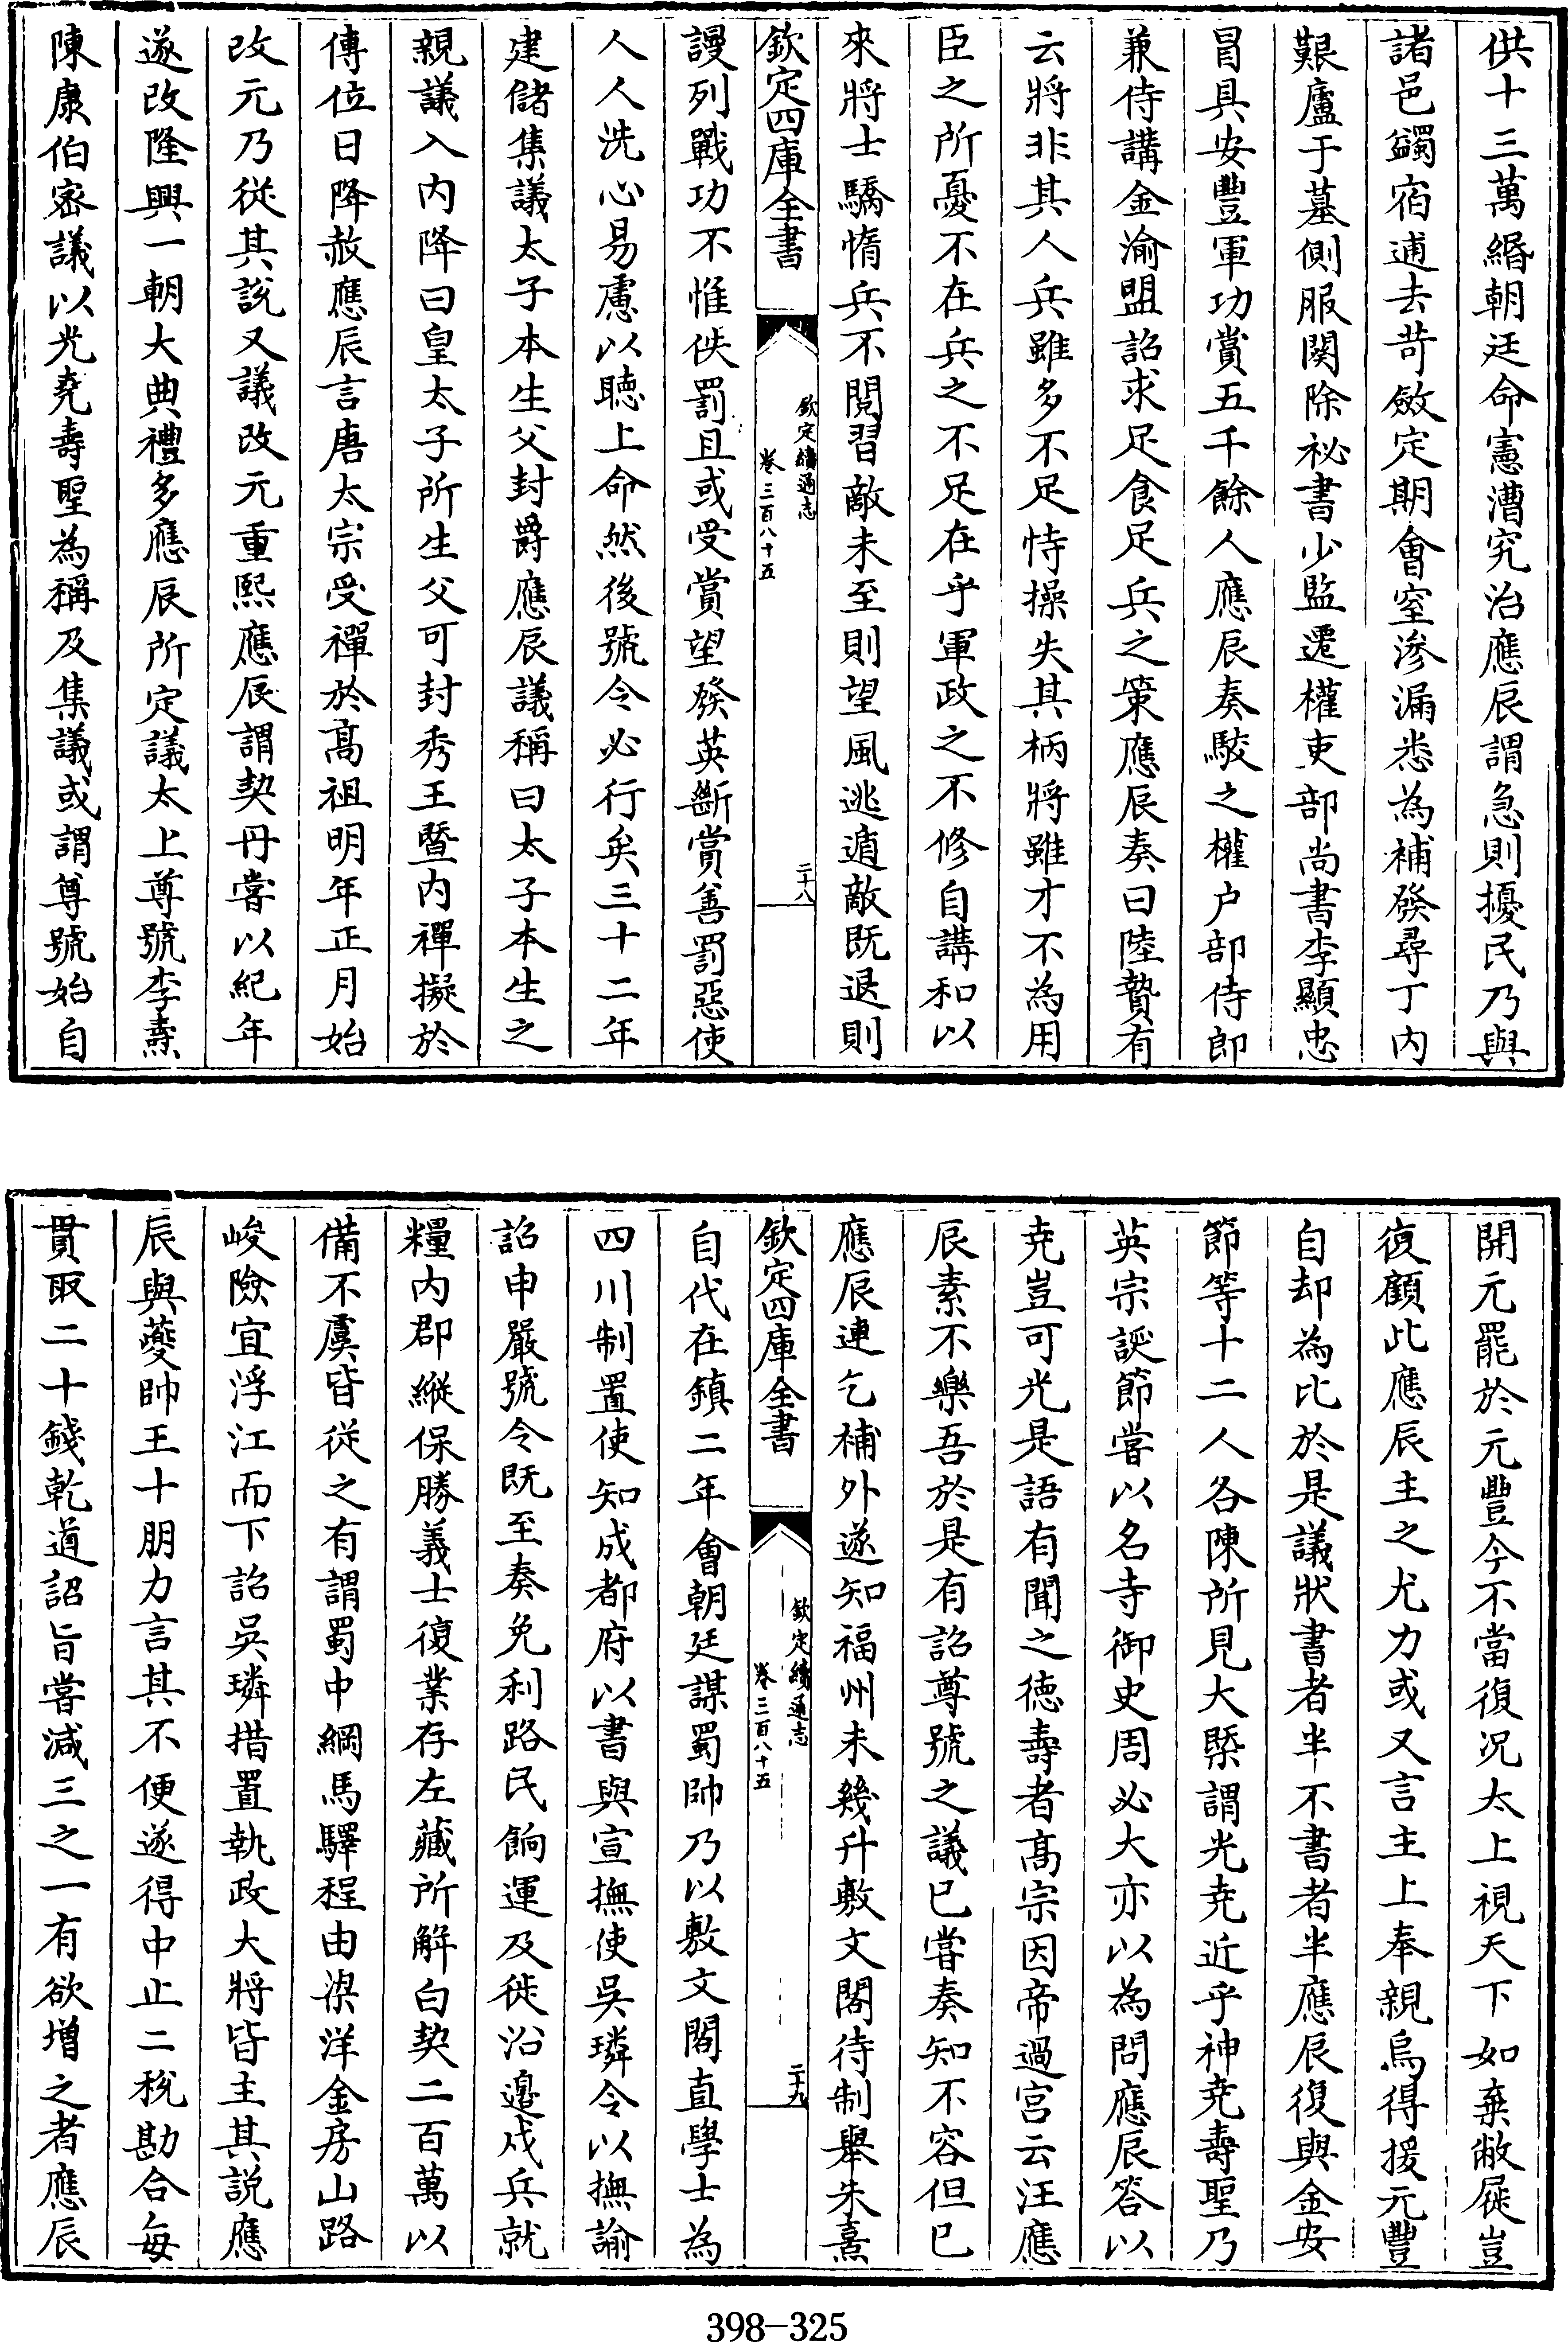 供十三萬緡朝廷命憲漕究治應辰謂急則擾民乃與
諸邑蠲宿逋去苛斂定期會窒滲漏悉為補發尋丁内
艱廬于墓側服闋除祕書少監遷權吏部尚書李顯忠
冒具安豐軍功賞五千餘人應辰奏駮之權户部侍郎
兼侍講金渝盟詔求足食足兵之策應辰奏曰陸贄有
云將非其人兵雖多不足恃操失其柄將雖才不為用
臣之所憂不在兵之不足在乎軍政之不修自講和以
來將士驕惰兵不閱習敵未至則望風逃遁敵既退則
欽定四庫全書
欽定續通志
卷三百八十五
二十八
謾列戰功不惟佚罰且或受賞望發英斷賞善罰惡使
人人洗心易慮以聽上命然後號令必行矣三十二年
建儲集議太子本生父封爵應辰議稱曰太子本生之
親議入内降曰皇太子所生父可封秀王暨内禪擬於
傳位日降赦應辰言唐太宗受禪於髙祖明年正月始
改元乃從其說又議改元重熙應辰謂契丹嘗以紀年
遂改隆興一朝大典禮多應辰所定議太上尊號李燾
陳康伯密議以光堯壽聖為稱及集議或謂尊號始自
開元罷於元豐今不當復況太上視天下如棄敝屣豈
復顧此應辰主之尤力或又言主上奉親烏得援元豐
自却為比於是議狀書者半不書者半應辰復與金安
節等十二人各陳所見大槩謂光堯近乎神堯壽聖乃
英宗誕節嘗以名寺御史周必大亦以為問應辰答以
堯豈可光是語有聞之德壽者髙宗因帝過宫云汪應
辰素不樂吾於是有詔尊號之議已嘗奏知不容但已
應辰連乞補外遂知福州未幾升敷文閣待制舉朱熹
欽定四庫全書
欽定續通志
卷三百八十五
二十九
自代在鎮二年會朝廷謀蜀帥乃以敷文閣直學士為
四川制置使知成都府以書與宣撫使吳璘令以撫諭
詔申嚴號令既至奏免利路民餉運及徙沿邊戍兵就
糧内郡縱保勝義士復業存左藏所解白契二百萬以
備不虞皆從之有謂蜀中綱馬驛程由梁洋金房山路
峻險宜浮江而下詔吳璘措置執政大將皆主其説應
辰與夔帥王十朋力言其不便遂得中止二稅勘合每
貫取二十錢乾道詔旨嘗減三之一有欲增之者應辰
398-325